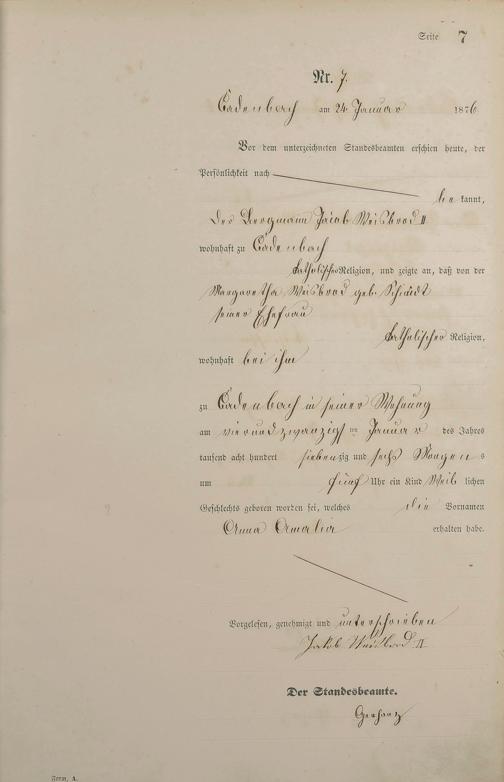 Seite 7
Nr. 7.
Cadenbach am 24 Januar 1876
Vor dem unterzeichneten Standesbeamten erschien heute, der
Persönlichkeit nach
be kannt,
der Bergmann Jacob Weisbrod II
wohnhaft zu Cadenbach
katholischer Religion, und zeigte an, daß von der
Margaretha Weisbrod geb. Schmidt
seiner Ehefrau
katholischer Religion,
wohnhaft bei ihm
zu Cadenbach in seiner Wohnung
am vierundzwanzigsten Januar des Jahres
tausend acht hundert siebenzig und sechs Morgens
um fünf Uhr ein Kind Weib lichen
Geschlechts geboren worden sei, welches die Vornamen
Anna Amalia erhalten habe.
Vorgelesen, genehmigt und unterschrieben
Jakob Weisbrod II
Der Standesbeamte.
Gerhartz
Form. A.